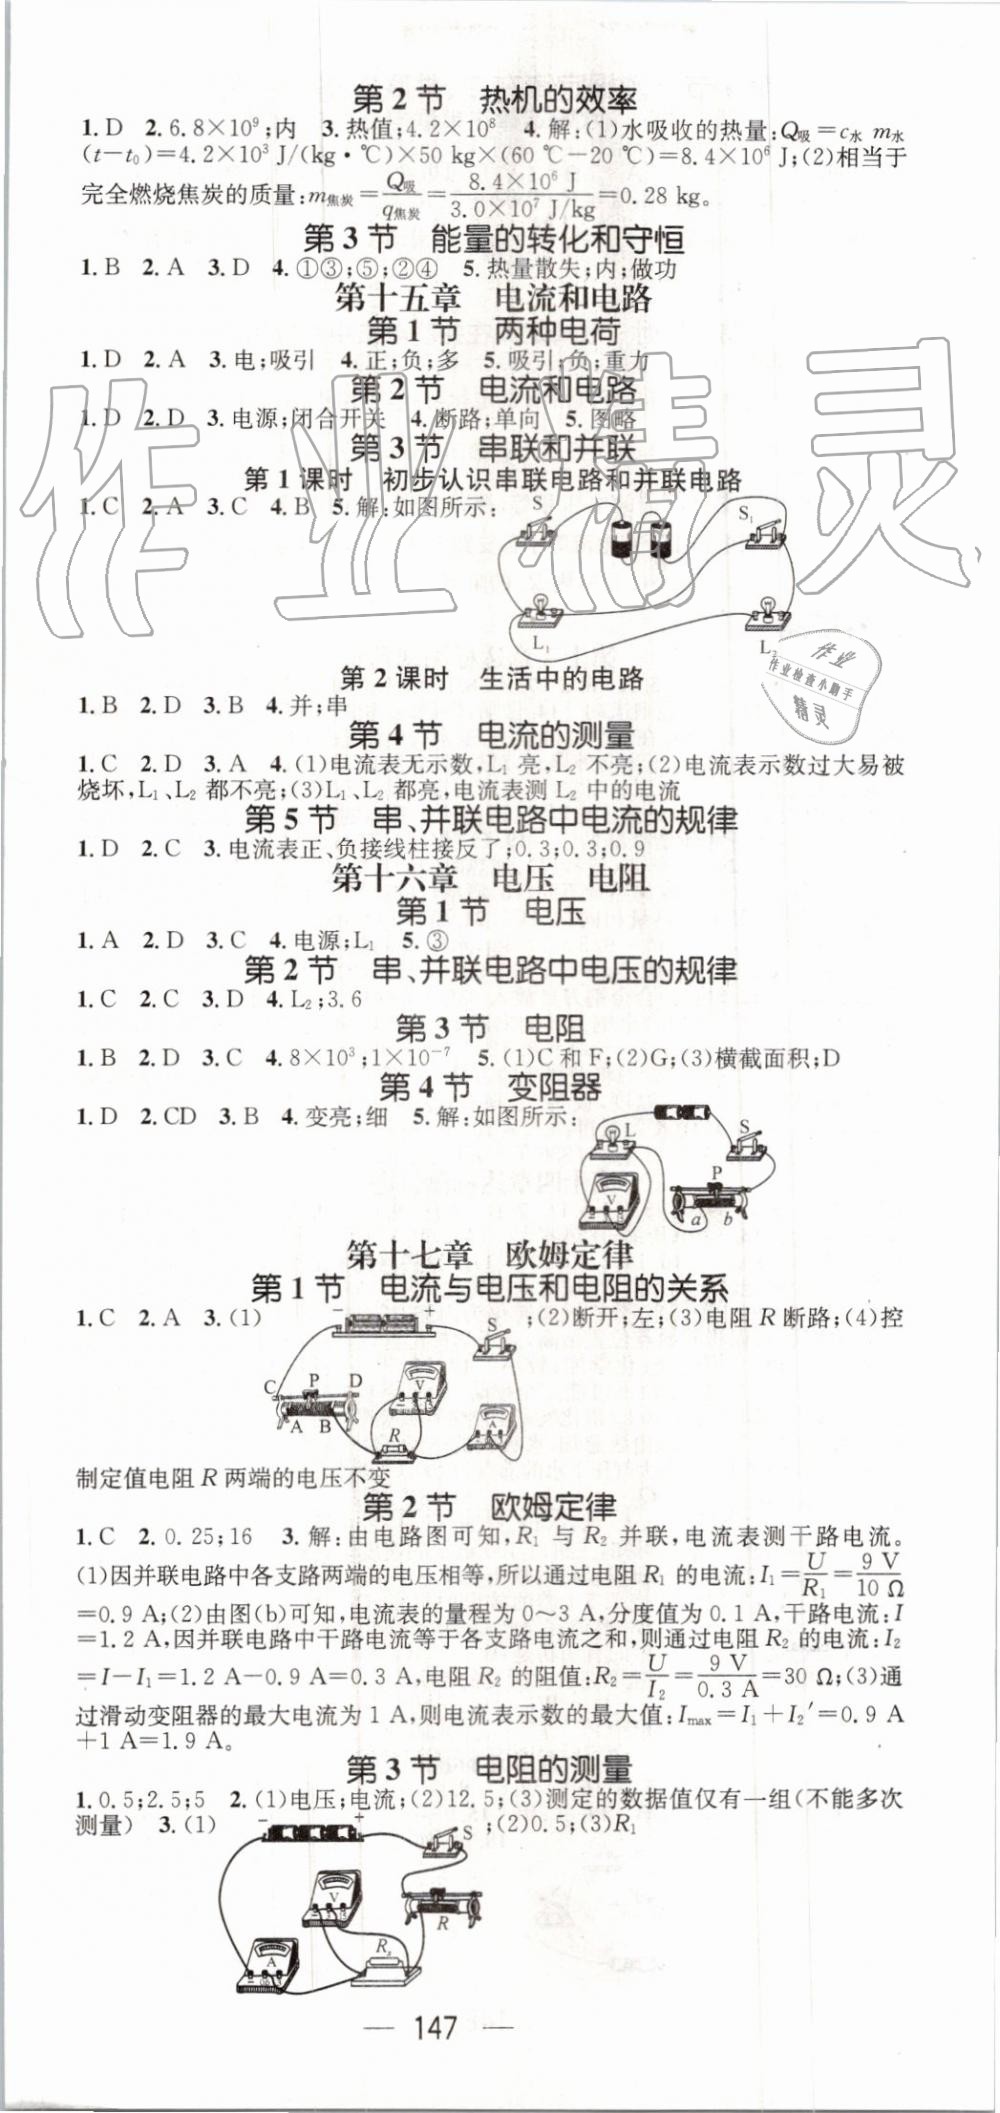 第2节 热机的效率
1.D 2.6.8×10⁹;内 3.热值;4.2×10⁸ 4.解:(1)水吸收的热量:Q吸=c水 m水
(t-t₀)=4.2×10³ J/(kg·℃)×50 kg×(60 ℃-20 ℃)=8.4×10⁶ J;(2)相当于
完全燃烧焦炭的质量:m焦炭=Q吸/q焦炭=8.4×10⁶ J/3.0×10⁷ J/kg=0.28 kg。
第3节 能量的转化和守恒
1.B 2.A 3.D 4.①③;⑤;②④ 5.热量散失;内;做功
第十五章 电流和电路
第1节 两种电荷
1.D 2.A 3.电;吸引 4.正;负;多 5.吸引;负;重力
第2节 电流和电路
1.D 2.D 3.电源;闭合开关 4.断路;单向 5.图略
第3节 串联和并联
第1课时 初步认识串联电路和并联电路
1.C 2.A 3.C 4.B 5.解:如图所示:
S
S₁
L₁
L₂
第2课时 生活中的电路
1.B 2.D 3.B 4.并;串
第4节 电流的测量
1.C 2.D 3.A 4.(1)电流表无示数,L₁ 亮,L₂ 不亮;(2)电流表示数过大易被
烧坏,L₁、L₂ 都不亮;(3)L₁、L₂ 都亮,电流表测 L₂ 中的电流
第5节 串、并联电路中电流的规律
1.D 2.C 3.电流表正、负接线柱接反了;0.3;0.3;0.9
第十六章 电压 电阻
第1节 电压
1.A 2.D 3.C 4.电源;L₁ 5.③
第2节 串、并联电路中电压的规律
1.C 2.C 3.D 4.L₂;3.6
第3节 电阻
1.B 2.D 3.C 4.8×10³;1×10⁻⁷ 5.(1)C 和 F;(2)G;(3)横截面积;D
第4节 变阻器
1.D 2.CD 3.B 4.变亮;细 5.解:如图所示:
L
S
V
P
a b
第十七章 欧姆定律
第1节 电流与电压和电阻的关系
1.C 2.A 3.(1)
;(2)断开;左;(3)电阻 R 断路;(4)控
- +
S
V
C P D
A B
R
A
制定值电阻 R 两端的电压不变
第2节 欧姆定律
1.C 2.0.25;16 3.解:由电路图可知,R₁ 与 R₂ 并联,电流表测干路电流。
(1)因并联电路中各支路两端的电压相等,所以通过电阻 R₁ 的电流:I₁=U/R₁=9 V/10 Ω
=0.9 A;(2)由图(b)可知,电流表的量程为 0~3 A,分度值为 0.1 A,干路电流:I
=1.2 A,因并联电路中干路电流等于各支路电流之和,则通过电阻 R₂ 的电流:I₂
=I-I₁=1.2 A-0.9 A=0.3 A,电阻 R₂ 的阻值:R₂=U/I₂=9 V/0.3 A=30 Ω;(3)通
过滑动变阻器的最大电流为 1 A,则电流表示数的最大值:Imax=I₁+I₂′=0.9 A
+1 A=1.9 A。
第3节 电阻的测量
1.0.5;2.5;5 2.(1)电压;电流;(2)12.5;(3)测定的数据值仅有一组(不能多次
测量) 3.(1)
;(2)0.5;(3)R₁
- +
S
V
R
A
Rₓ
147
作业精灵
作业
作业检查小助手
精灵